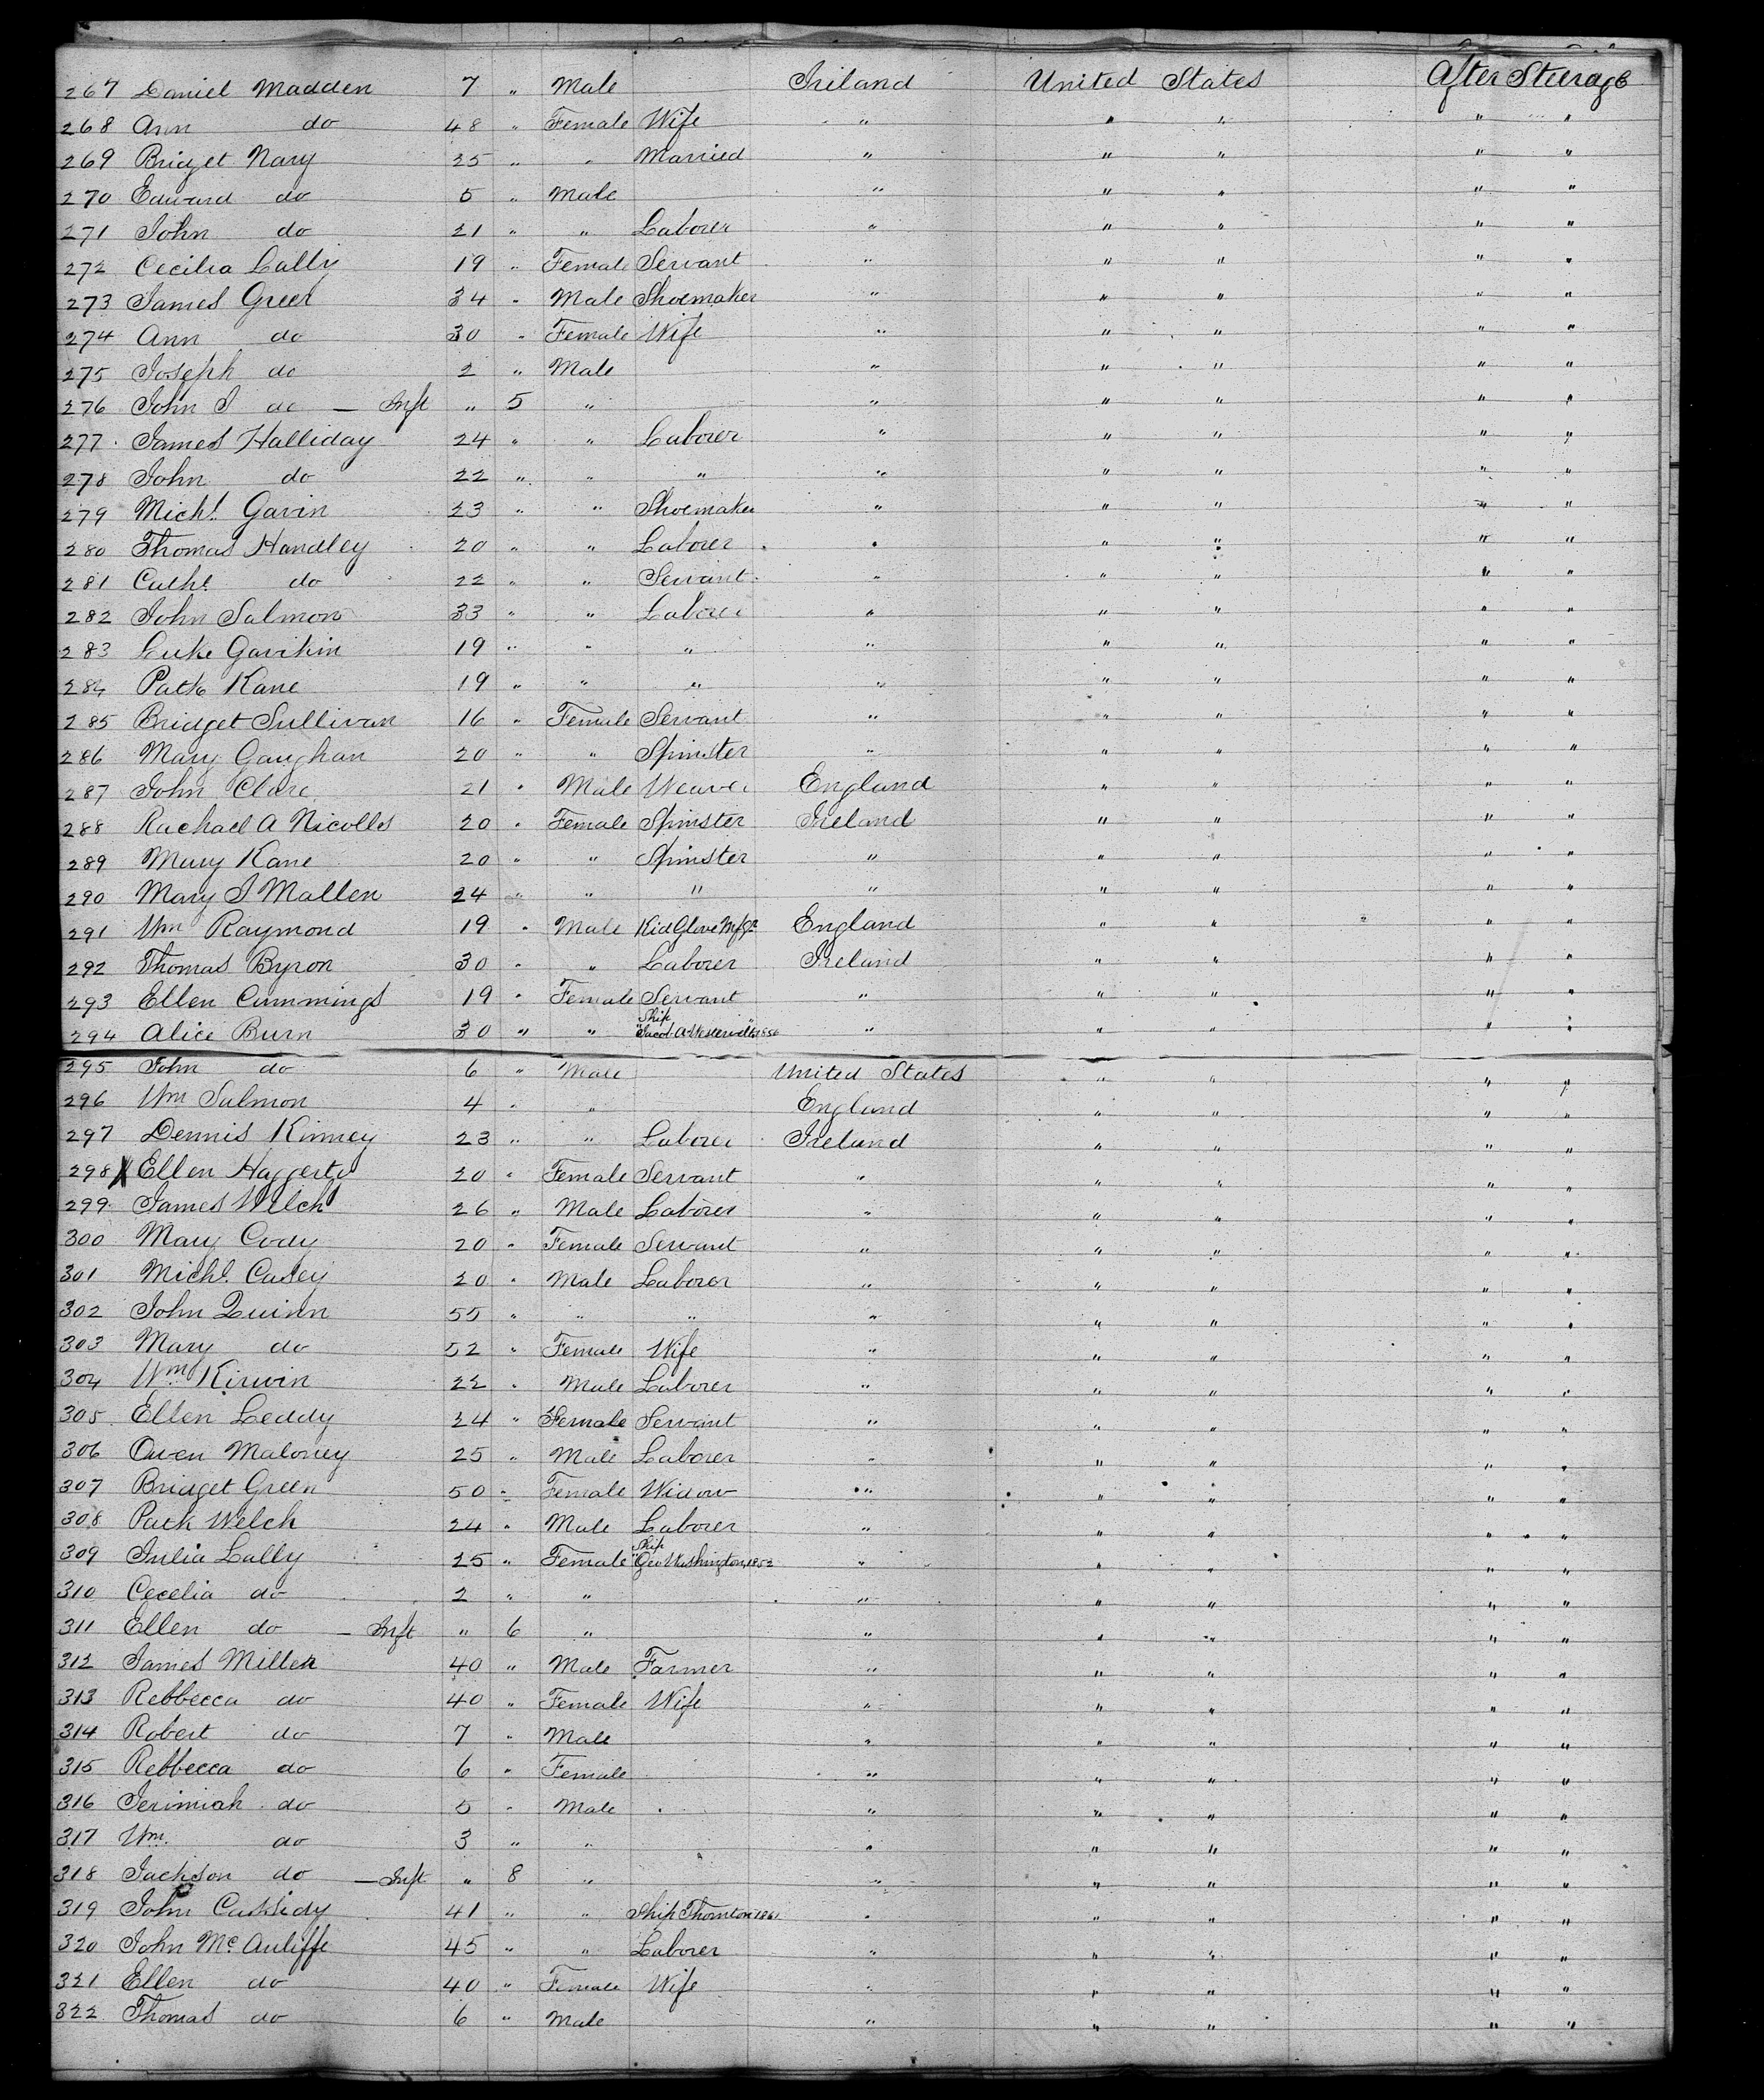 267 Daniel Madden 7 " Male Ireland United States After Steerage
268 Ann do 48 " Female Wife " " " " "
269 Bridget Nary 25 " " Married " " " " "
270 Edward do 5 " Male " " " " "
271 John do 21 " " Laborer " " " " "
272 Cecilia Lally 19 " Female Servant " " " " "
273 James Greer 34 " Male Shoemaker " " " " "
274 Ann do 30 " Female Wife " " " " "
275 Joseph do 2 " Male " " " " "
276 John J do — Inft " 5 " " " " " "
277 James Halliday 24 " " Laborer " " " " "
278 John do 22 " " " " " " " "
279 Michl. Gavin 23 " " Shoemaker " " " " "
280 Thomas Handley 20 " " Laborer " " " " "
281 Cathe. do 22 " " Servant " " " " "
282 John Salmon 33 " " Laborer " " " " "
283 Luke Gavikin 19 " " " " " " " "
284 Patk Kane 19 " " " " " " " "
285 Bridget Sullivan 16 " Female Servant " " " " "
286 Mary Gaughan 20 " " Spinster " " " " "
287 John Clare 21 " Male Weaver England " " " "
288 Rachael A Nicolls 20 " Female Spinster Ireland " " " "
289 Mary Kane 20 " " Spinster " " " " "
290 Mary J Mallen 24 " " " " " " " "
291 Wm Raymond 19 " Male Kid Glove Mfgr England " " " "
292 Thomas Byron 30 " " Laborer Ireland " " " "
293 Ellen Cummings 19 " Female Servant " " " " "
294 Alice Burn 30 " " Ship "Jacob A Westervelt" 1856 " " " " "
295 John do 6 " Male United States " " " "
296 Wm Salmon 4 " " England " " " "
297 Dennis Kinney 23 " " Laborer Ireland " " " "
298 X Ellen Haggerty 20 " Female Servant " " " " "
299 James Welch 26 " Male Laborer " " " " "
300 Mary Cody 20 " Female Servant " " " " "
301 Michl. Casey 20 " Male Laborer " " " " "
302 John Quinn 55 " " " " " " " "
303 Mary do 52 " Female Wife " " " " "
304 Wm. Kirwin 22 " Male Laborer " " " " "
305 Ellen Leddy 24 " Female Servant " " " " "
306 Owen Maloney 25 " Male Laborer " " " " "
307 Bridget Green 50 " Female Widow " " " " "
308 Patk Welch 24 " Male Laborer " " " " "
309 Julia Lally 25 " Female Ship "Geo Washington, 1852 " " " " "
310 Cecelia do 2 " " " " " " "
311 Ellen do — Inft " 6 " " " " " "
312 James Miller 40 " Male Farmer " " " " "
313 Rebbecca do 40 " Female Wife " " " " "
314 Robert do 7 " Male " " " " "
315 Rebbecca do 6 " Female " " " " "
316 Jerimiah do 5 " Male " " " " "
317 Wm. do 3 " " " " " " "
318 Jackson do — Inft " 8 " " " " " "
319 John Cassidy 41 " " Ship Thornton " " " " "
320 John Mc Auliffe 45 " " Laborer " " " " "
321 Ellen do 40 " Female Wife " " " " "
322 Thomas do 6 " Male " " " " "